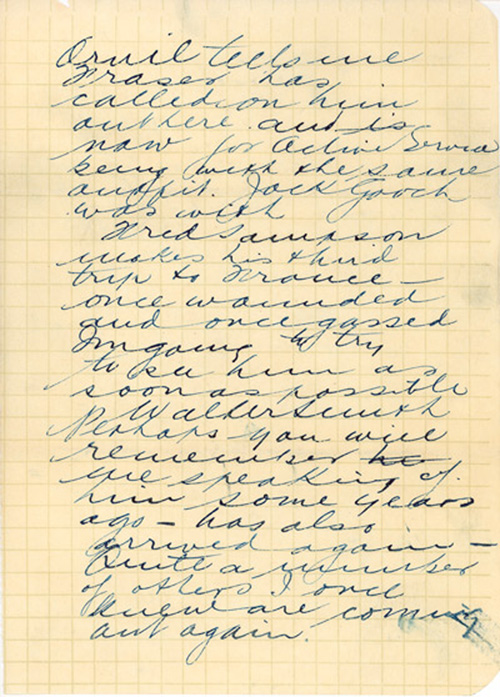 Orvil tells me
Fraser has
called on him
out here and is
now for Active Service
being with the same
outfit Jack Gooch
was with
Fred Sampson
makes his third
trip to France —
once wounded
and once gassed
Im going to try
to see him as
soon as possible
Walter Smith
Perhaps you will
remember
me speaking of
him some years
ago — has also
arrived again —
Quite a number
of others I once
knew are coming
out again.